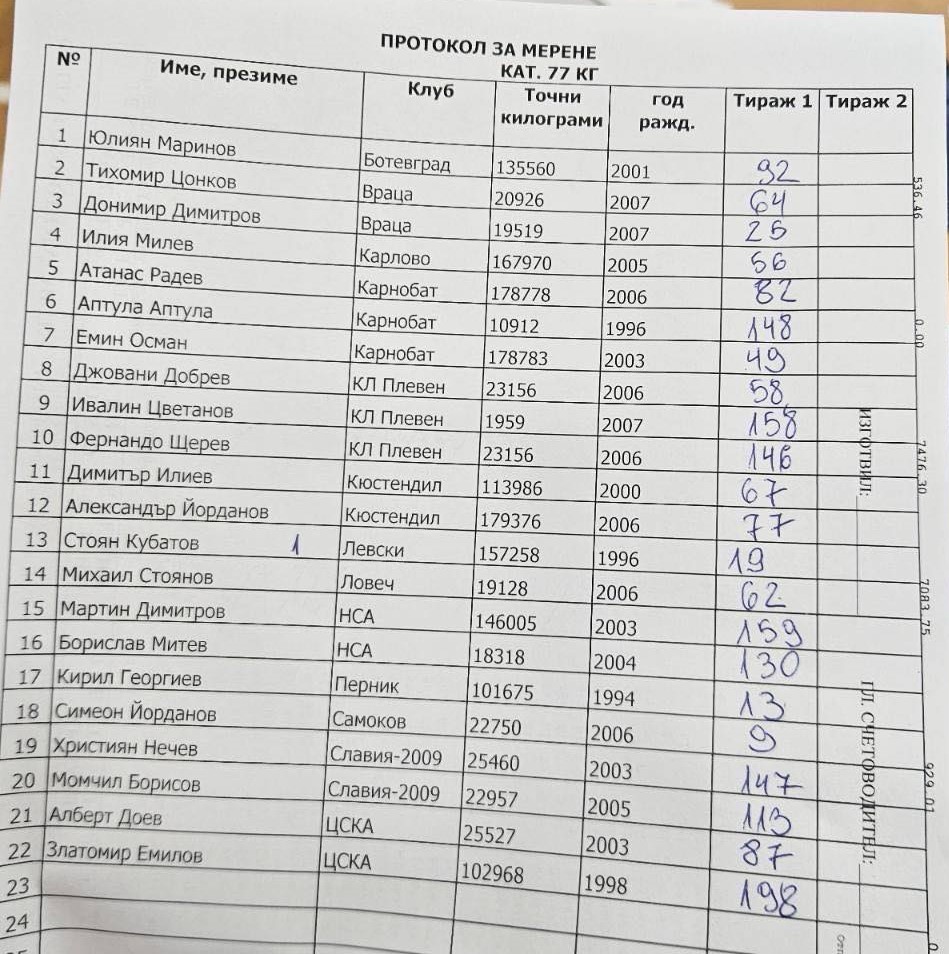 ПРОТОКОЛ ЗА МЕРЕНЕ
КАТ. 77 КГ
№ Име, презиме Клуб Точни килограми год ражд. Тираж 1 Тираж 2
1 Юлиян Маринов Ботевград 135560 2001 92
2 Тихомир Цонков Враца 20926 2007 64
3 Донимир Димитров Враца 19519 2007 25
4 Илия Милев Карлово 167970 2005 56
5 Атанас Радев Карнобат 178778 2006 82
6 Аптула Аптула Карнобат 10912 1996 148
7 Емин Осман Карнобат 178783 2003 49
8 Джовани Добрев КЛ Плевен 23156 2006 58
9 Ивалин Цветанов КЛ Плевен 1959 2007 158
10 Фернандо Щерев КЛ Плевен 23156 2006 146
11 Димитър Илиев Кюстендил 113986 2000 67
12 Александър Йорданов Кюстендил 179376 2006 77
13 Стоян Кубатов 1 Левски 157258 1996 19
14 Михаил Стоянов Ловеч 19128 2006 62
15 Мартин Димитров НСА 146005 2003 159
16 Борислав Митев НСА 18318 2004 130
17 Кирил Георгиев Перник 101675 1994 13
18 Симеон Йорданов Самоков 22750 2006 9
19 Християн Нечев Славия-2009 25460 2003 147
20 Момчил Борисов Славия-2009 22957 2005 113
21 Алберт Доев ЦСКА 25527 2003 87
22 Златомир Емилов ЦСКА 102968 1998 198
23
24
536.46
0.00
7476.30
7083.75
929.01
ИЗГОТВИЛ:
ПЛ. СЧЕТОВОДИТЕЛ: